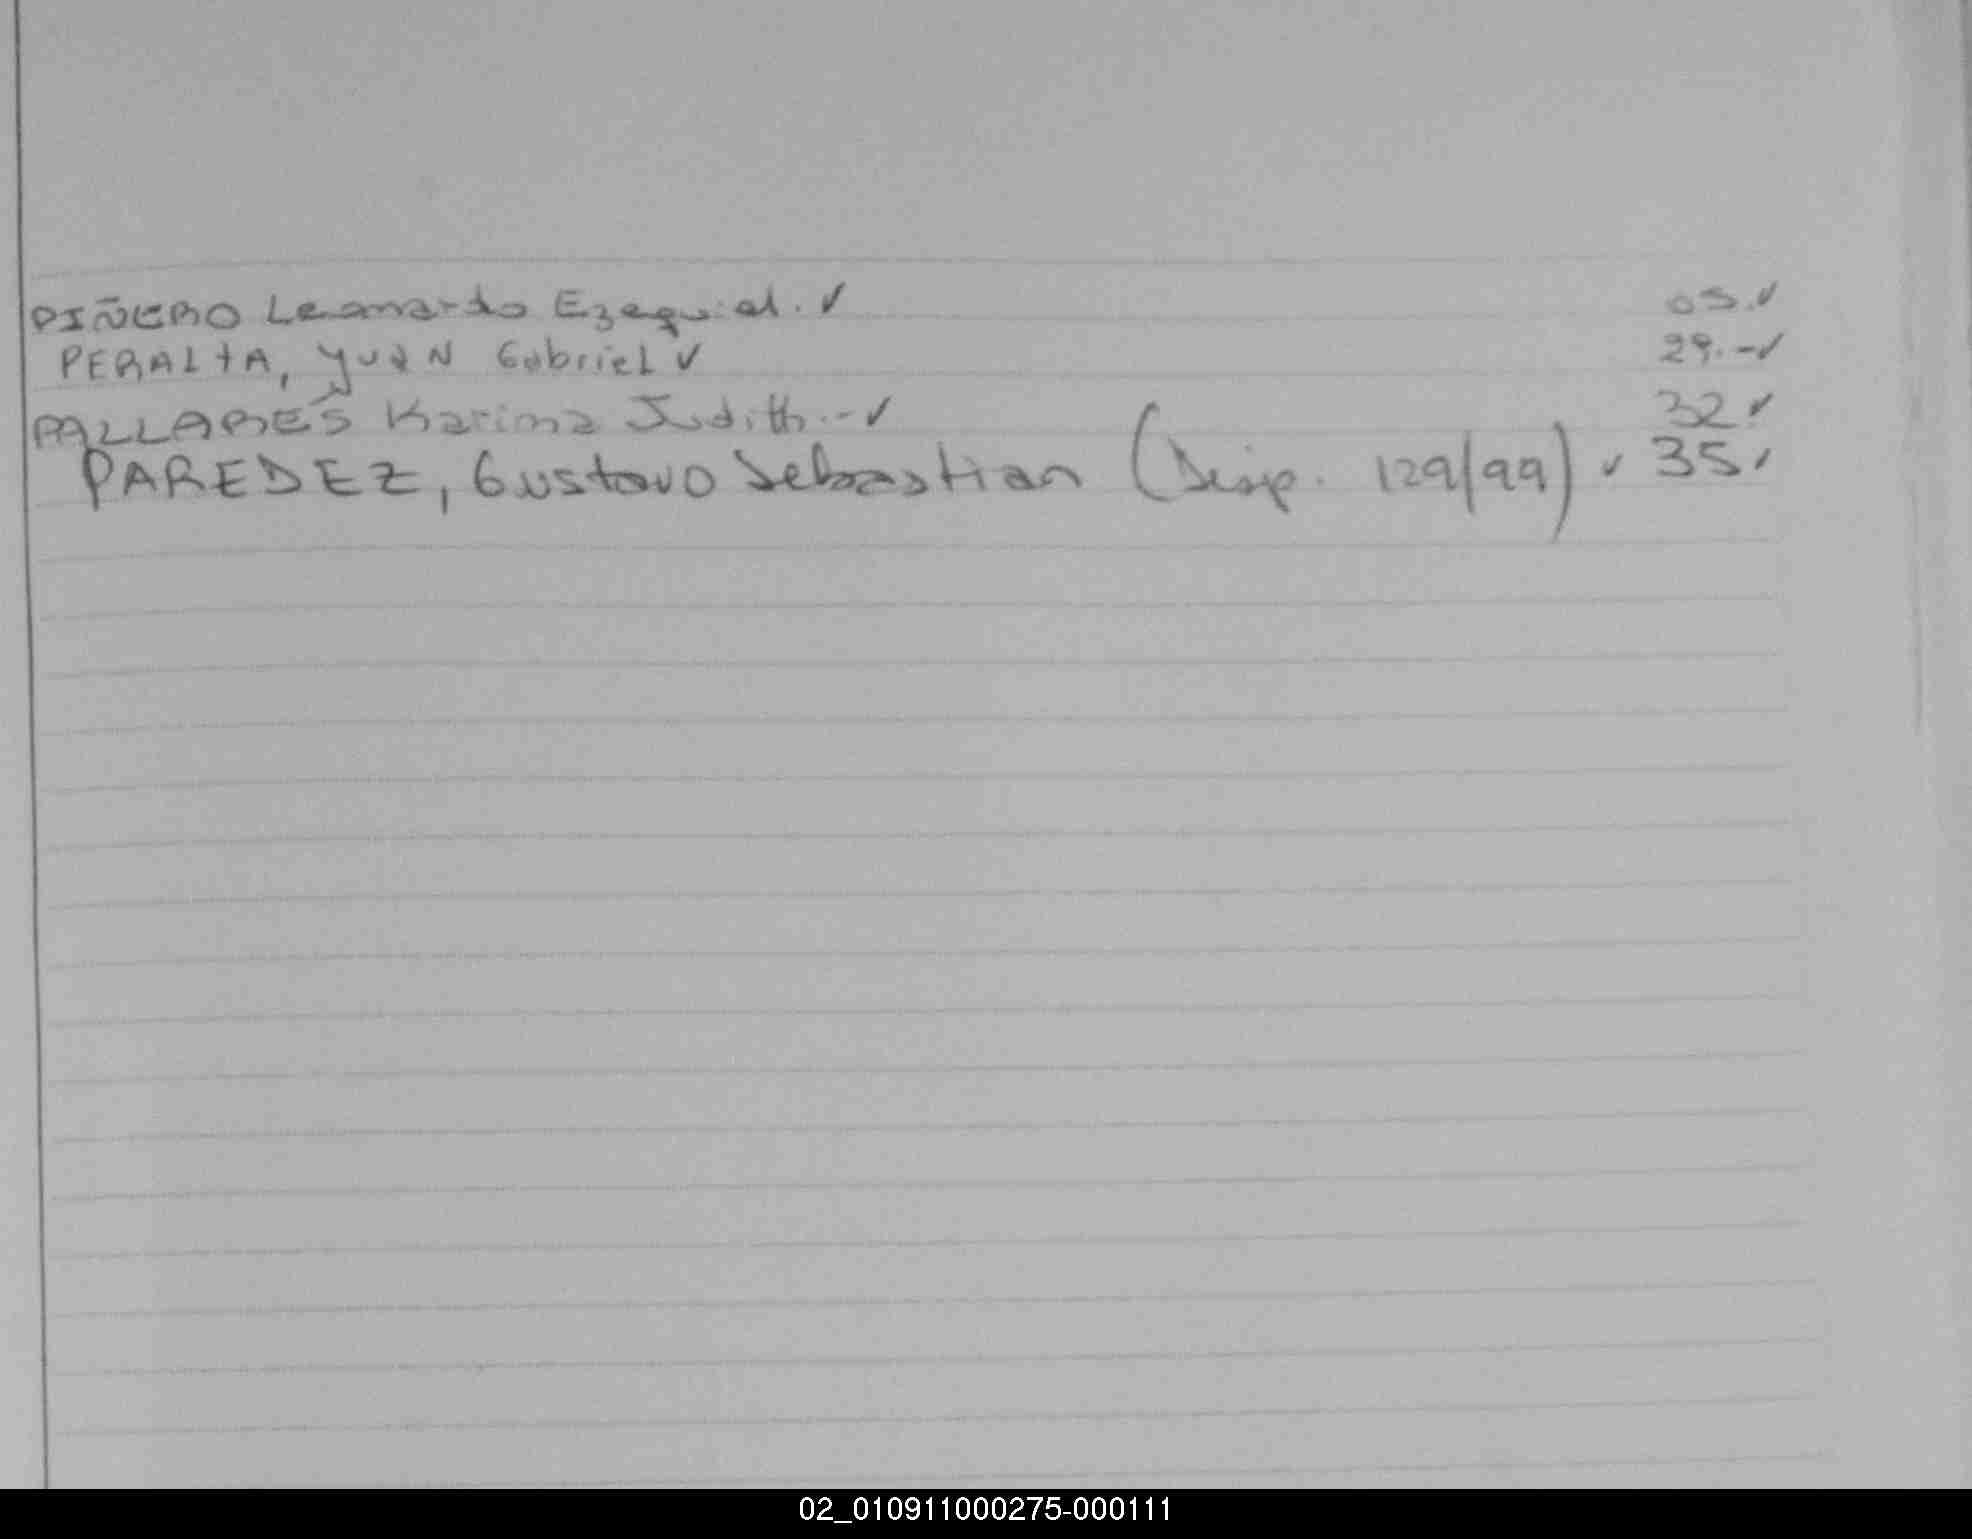 PIÑERO Leonardo Ezequiel. ✓ 05. ✓
PERALTA, YUAN Gabriel ✓ 29. - ✓
PALLARES Karina Judith. - ✓ 32 ✓
PAREDEZ, Gustavo Sebastian (Disp. 129/99) ✓ 35 ✓
02_010911000275-000111